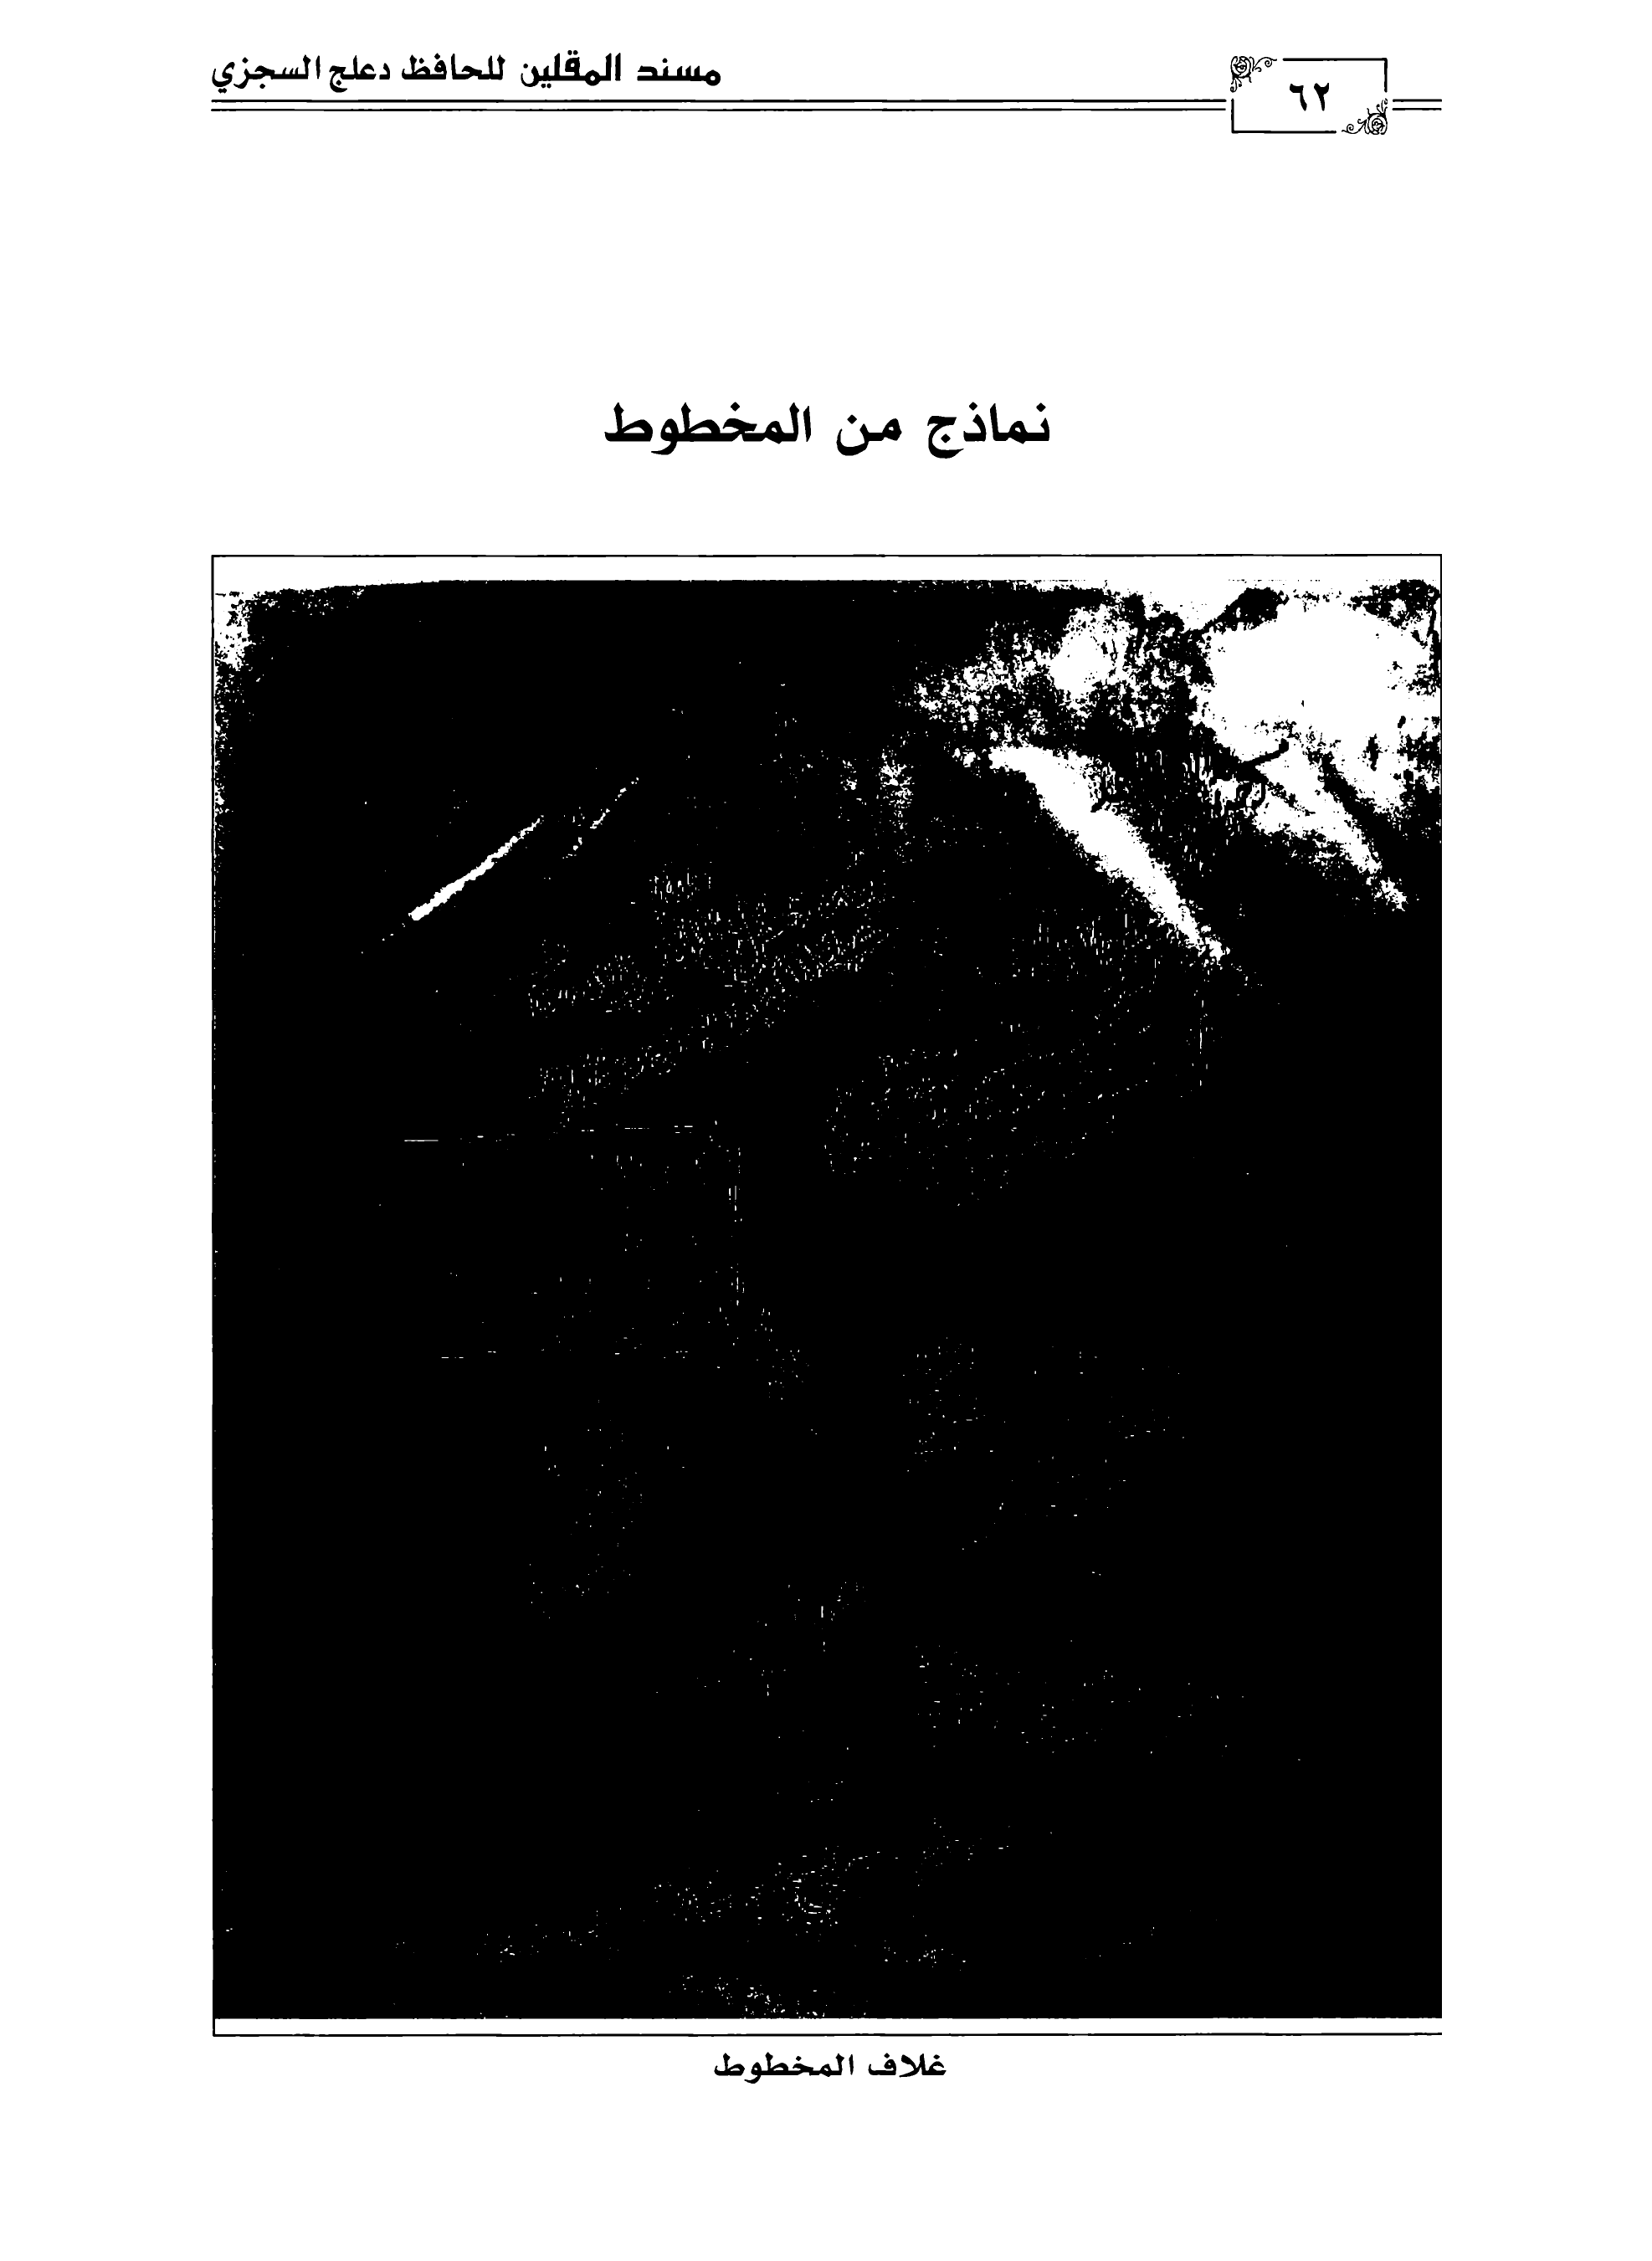 ٦٢
مسند المقلين للحافظ دعلج السجزي
نماذج من المخطوط
غلاف المخطوط